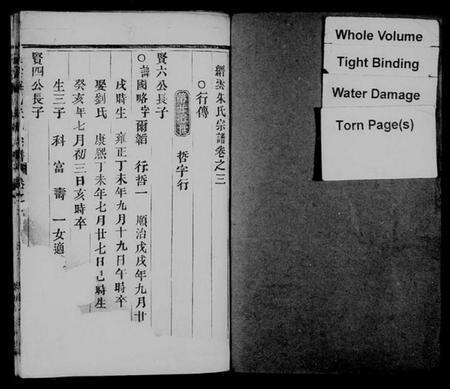 朱氏宗譜卷之三
○行傳
哲字行
賢六公長子
國略字爾韜 行哲一 順治戊戌年九月廿
戌時生 雍正丁未年九月十九日午時卒
娶劉氏 康熙丁未年七月廿七日巳時生
癸亥年七月初三日亥時卒
生三子 科 富 壽 一女適
賢四公長子
Whole Volume
Tight Binding
Water Damage
Torn Page(s)